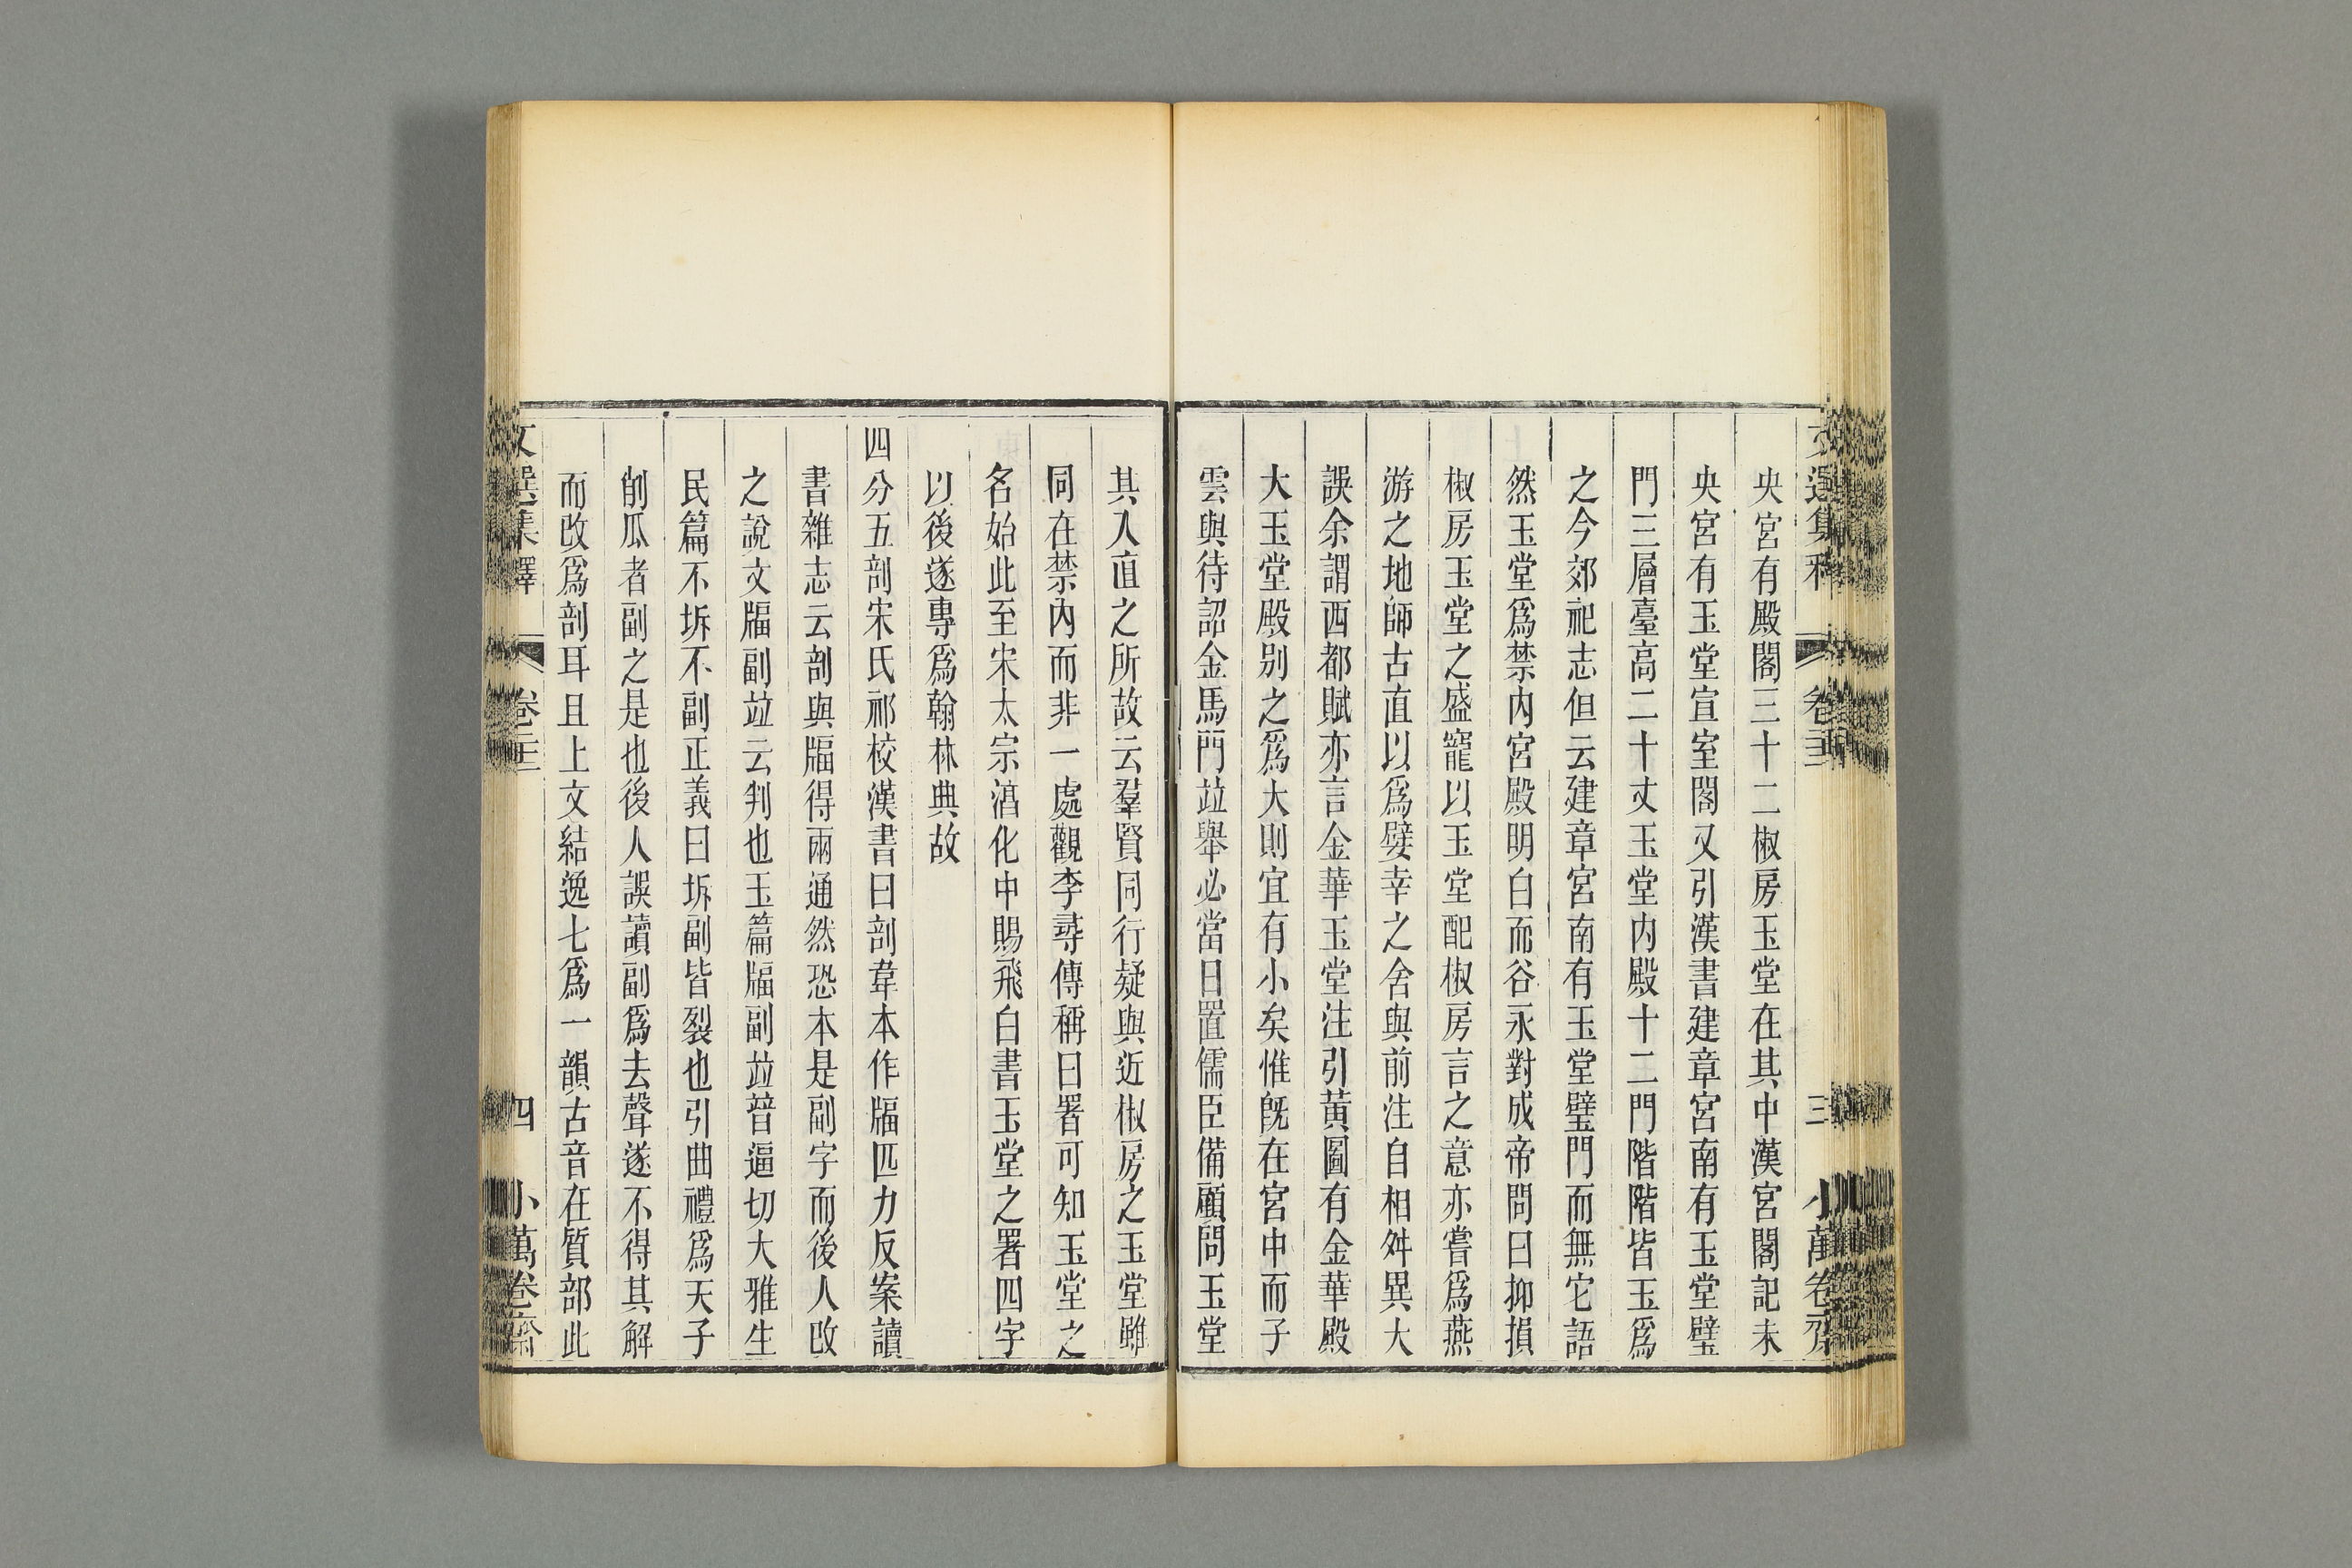 文選集釋 卷二十三 三 小萬卷齋
央宮有殿閣三十二椒房玉堂在其中漢宮閣記未
央宮有玉堂宣室閣又引漢書建章宮南有玉堂璧
門三層臺高二十丈玉堂內殿十二門階階皆玉爲
之今郊祀志但云建章宮南有玉堂璧門而無它語
然玉堂爲禁內宮殿明白而谷永對成帝問曰抑損
椒房玉堂之盛寵以玉堂配椒房言之意亦嘗爲燕
游之地師古直以爲嬖幸之舍與前注自相舛異大
誤余謂西都賦亦言金華玉堂注引黃圖有金華殿
大玉堂殿別之爲大則宜有小矣惟旣在宮中而子
雲與待詔金馬門竝舉必當日置儒臣備顧問玉堂
其入直之所故云羣賢同行疑與近椒房之玉堂雖
同在禁內而非一處觀李尋傳稱曰署可知玉堂之
名始此至宋太宗湻化中賜飛白書玉堂之署四字
以後遂專爲翰林典故
四分五剖宋氏祁校漢書曰剖韋本作牑匹力反案讀
書雜志云剖與牑得兩通然恐本是副字而後人改
之說文牑副竝云判也玉篇牑副竝普逼切大雅生
民篇不坼不副正義曰坼副皆裂也引曲禮爲天子
削瓜者副之是也後人誤讀副爲去聲遂不得其解
而改爲剖耳且上文結逸七爲一韻古音在質部此
文選集釋 卷二十三 四 小萬卷齋